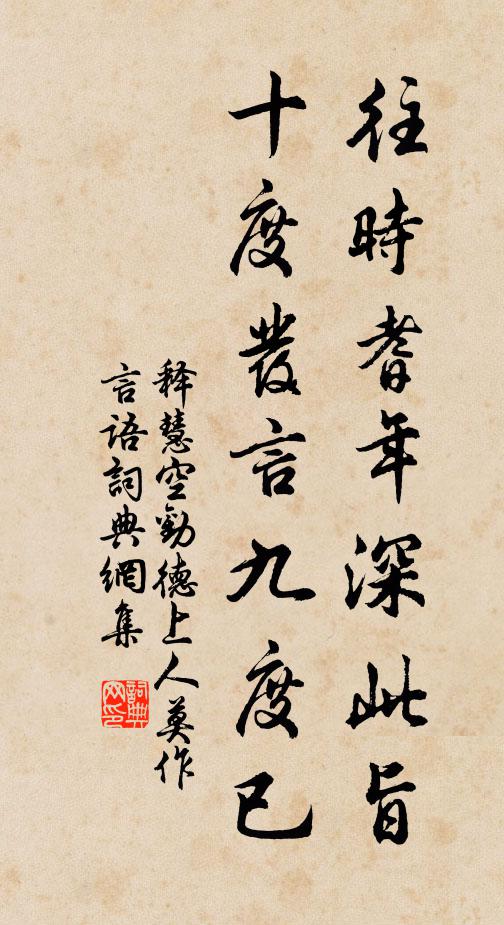 往時耆年深此旨
十度發言九度已
释慧空勸德上人莫作
言語詞典網集
詞典
网印